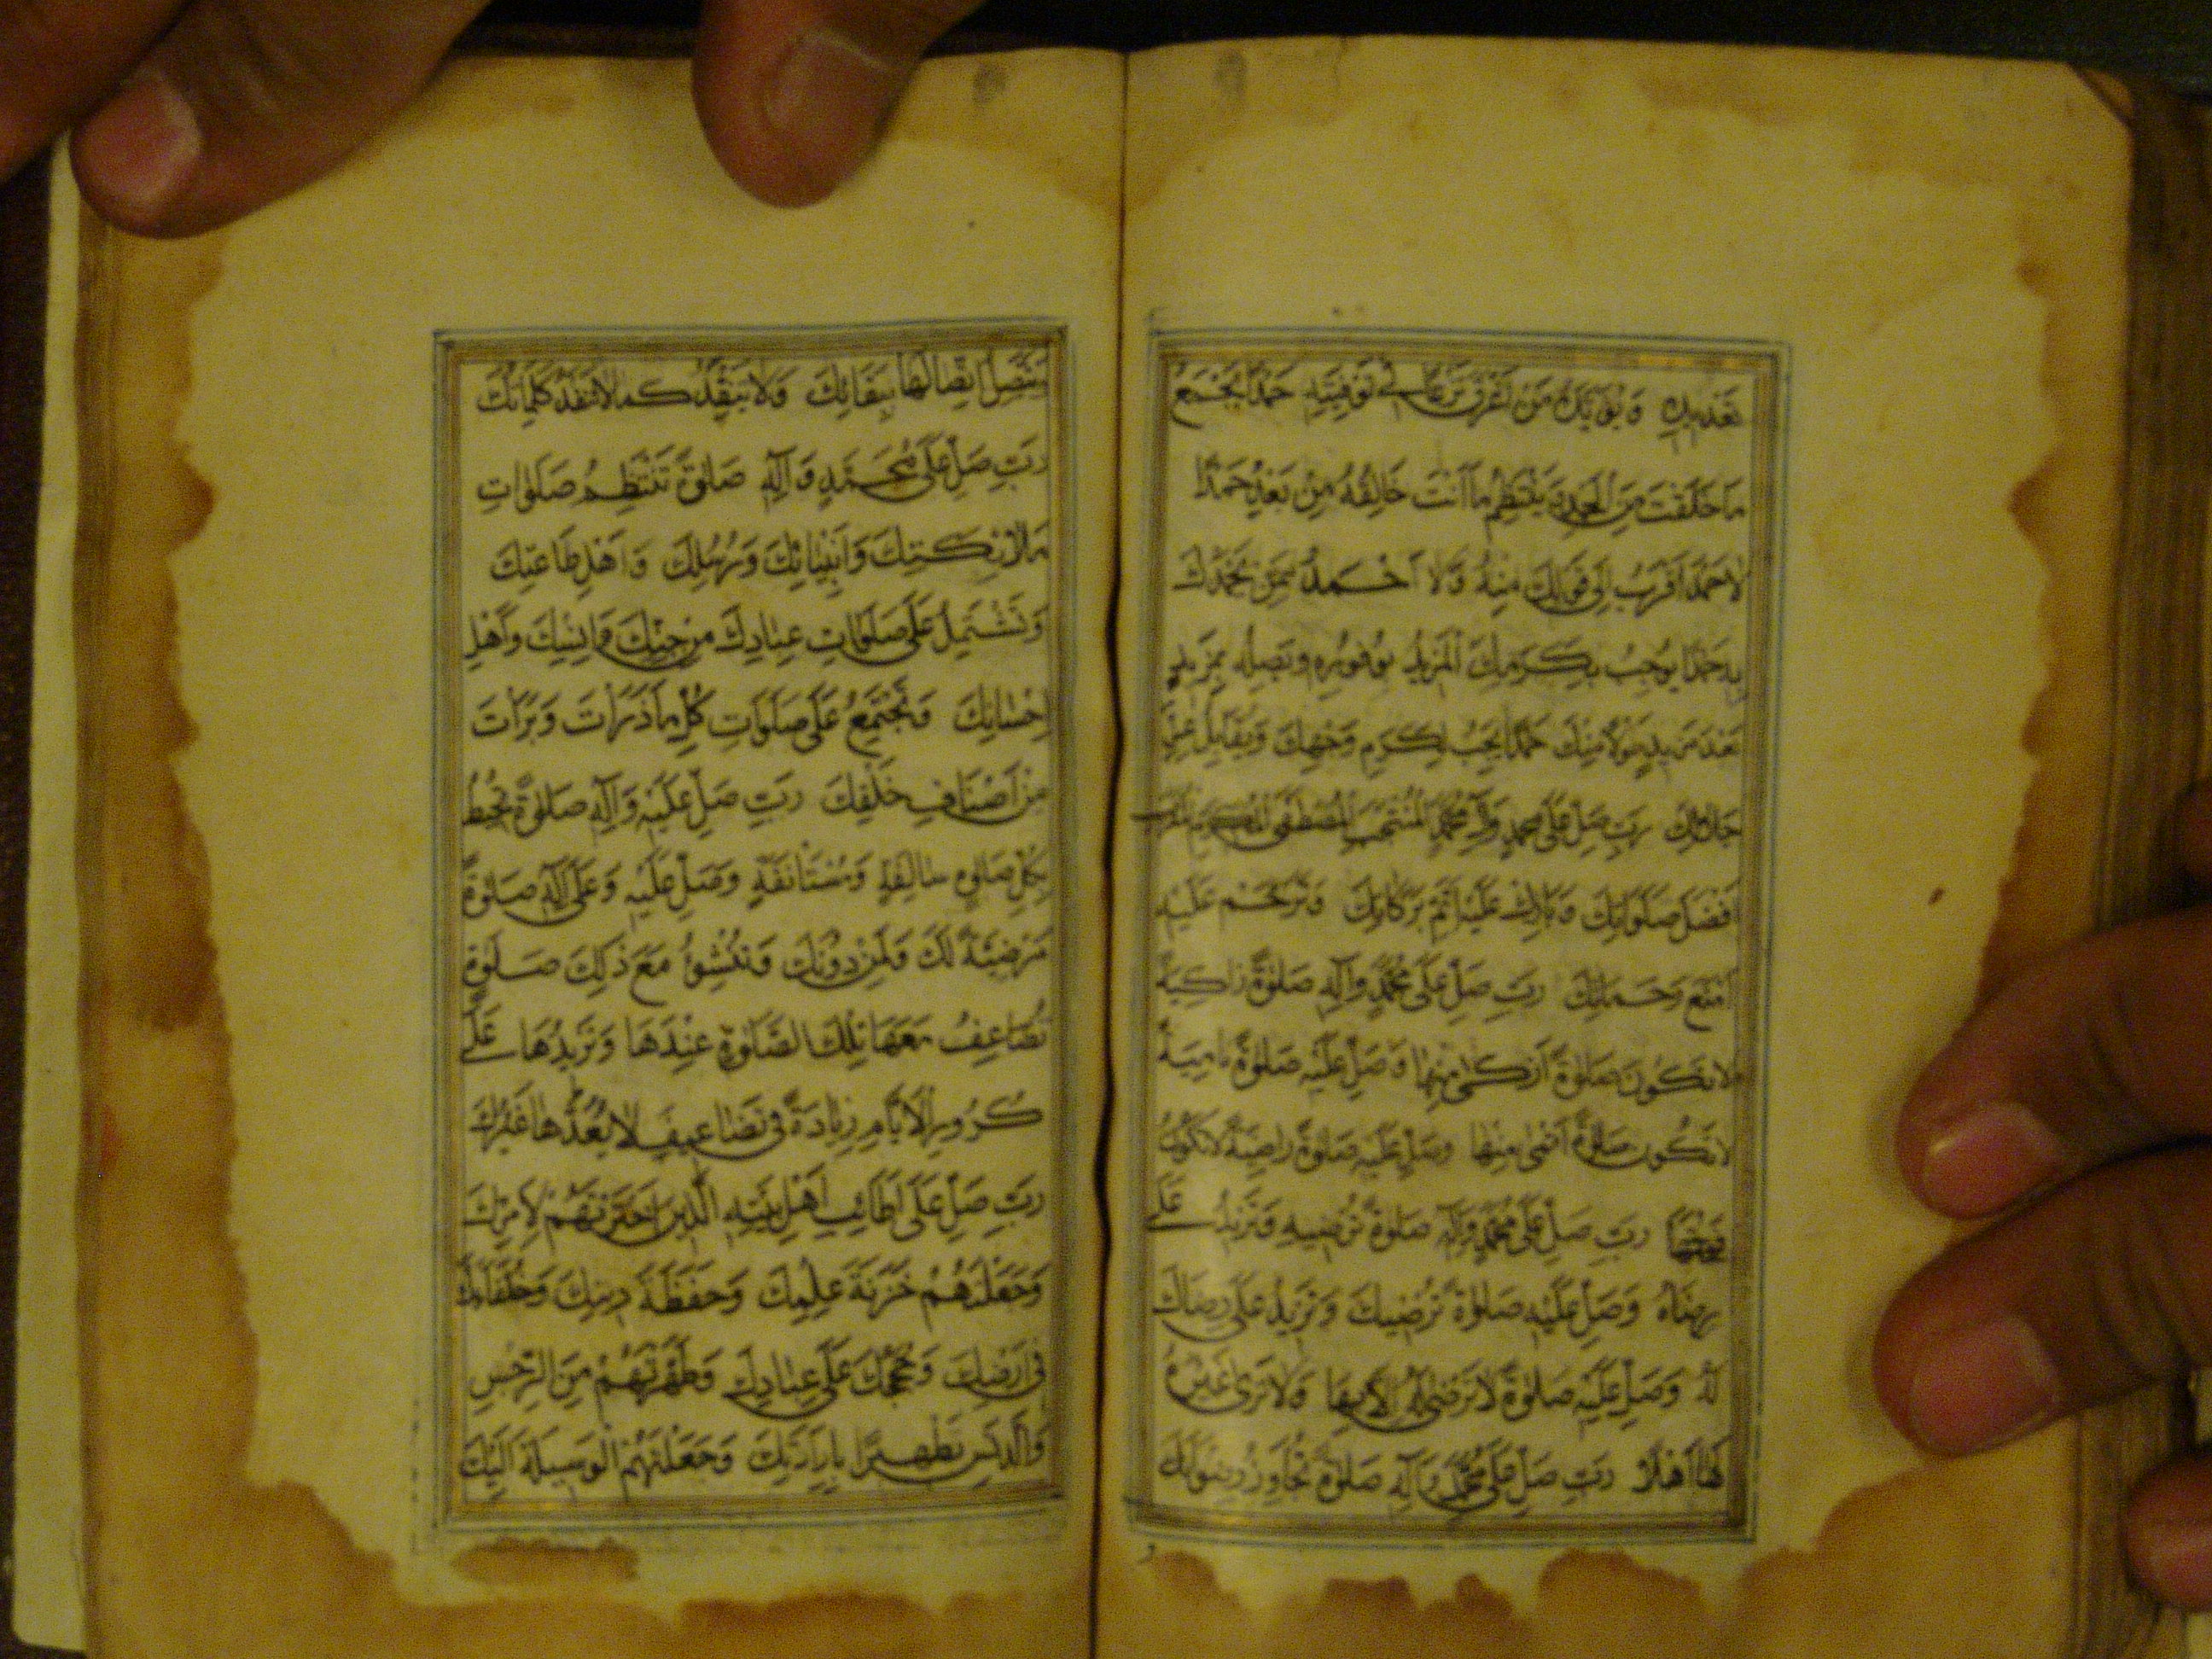 تَعْدِيدِهِ وَيُؤَيَّدُ مَنْ أَغْرَقَ نَزْعًا فِي تَوْفِيَتِهِ حَمْدًا يَجْمَعُ
مَا خَلَقْتَ مِنَ الْحَمْدِ وَيَنْتَظِمُ مَا أَنْتَ خَالِقُهُ مِنْ بَعْدُ حَمْدًا
لَا حَمْدَ أَقْرَبُ إِلَى قَوْلِكَ مِنْهُ وَلَا أَحْمَدَ مِمَّنْ يَحْمَدُكَ
بِهِ حَمْدًا يُوجِبُ بِكَرَمِكَ الْمَزِيدَ بِوُفُورِهِ وَتَصِلُهُ بِمَزِيدٍ
بَعْدَ مَزِيدٍ طَوْلًا مِنْكَ حَمْدًا يَجِبُ لِكَرَمِ وَجْهِكَ وَيُقَابِلُ عِزَّ
جَلَالِكَ رَبِّ صَلِّ عَلَى مُحَمَّدٍ وَآلِ مُحَمَّدٍ الْمُنْتَجَبِ الْمُصْطَفَى الْمُكَرَّمِ الْمُقَرَّبِ
أَفْضَلَ صَلَوَاتِكَ وَبَارِكْ عَلَيْهِ أَتَمَّ بَرَكَاتِكَ وَتَرَحَّمْ عَلَيْهِ
أَمْتَعَ رَحَمَاتِكَ رَبِّ صَلِّ عَلَى مُحَمَّدٍ وَآلِهِ صَلٰوةً زَاكِيَةً
لَا تَكُونُ صَلٰوةٌ أَزْكَى مِنْهَا وَصَلِّ عَلَيْهِ صَلٰوةً نَامِيَةً
لَا تَكُونُ صَلٰوةٌ أَنْمَى مِنْهَا وَصَلِّ عَلَيْهِ صَلٰوةً رَاضِيَةً لَا تَكُونُ
فَوْقَهَا رَبِّ صَلِّ عَلَى مُحَمَّدٍ وَآلِهِ صَلٰوةً تُرْضِيهِ وَتَزِيدُ عَلَى
رِضَاهُ وَصَلِّ عَلَيْهِ صَلٰوةً تُرْضِيكَ وَتَزِيدُ عَلَى رِضَاكَ
لَهُ وَصَلِّ عَلَيْهِ صَلٰوةً لَا تَرْضَى لَهُ إِلَّا بِهَا وَلَا تَرَى غَيْرَهُ
لَهَا أَهْلًا رَبِّ صَلِّ عَلَى مُحَمَّدٍ وَآلِهِ صَلٰوةً تُجَاوِزُ رِضْوَانَكَ
وَيَتَّصِلُ اتِّصَالُهَا بِبَقَائِكَ وَلَا يَنْفَدُ كَمَا لَا تَنْفَدُ كَلِمَاتُكَ
رَبِّ صَلِّ عَلَى مُحَمَّدٍ وَآلِهِ صَلٰوةً تَنْتَظِمُ صَلَوَاتِ
مَلَائِكَتِكَ وَأَنْبِيَائِكَ وَرُسُلِكَ وَأَهْلِ طَاعَتِكَ
وَتَشْتَمِلُ عَلَى صَلَوَاتِ عِبَادِكَ مِنْ جِنِّكَ وَإِنْسِكَ وَأَهْلِ
إِجَابَتِكَ وَتَجْتَمِعُ عَلَى صَلَوَاتِ كُلِّ مَا ذَرَأْتَ وَبَرَأْتَ
مِنْ أَصْنَافِ خَلْقِكَ رَبِّ صَلِّ عَلَيْهِ وَآلِهِ صَلٰوةً تُحِيطُ
بِكُلِّ صَلٰوةٍ سَالِفَةٍ وَمُسْتَأْنَفَةٍ وَصَلِّ عَلَيْهِ وَعَلَى آلِهِ صَلٰوةً
مَرْضِيَّةً لَكَ وَلِمَنْ دُونَكَ وَتُنْشِئُ مَعَ ذَلِكَ صَلٰوةً
تُضَاعِفُ مَعَهَا تِلْكَ الصَّلٰوةَ عِنْدَهَا وَتَزِيدُهَا عَلَى
كُرُورِ الْأَيَّامِ زِيَادَةً فِي تَضَاعِيفَ لَا يَعُدُّهَا غَيْرُكَ
رَبِّ صَلِّ عَلَى أَطَائِبِ أَهْلِ بَيْتِهِ الَّذِينَ اخْتَرْتَهُمْ لِأَمْرِكَ
وَجَعَلْتَهُمْ خَزَنَةَ عِلْمِكَ وَحَفَظَةَ دِينِكَ وَخُلَفَاءَكَ
فِي أَرْضِكَ وَحُجَجَكَ عَلَى عِبَادِكَ وَطَهَّرْتَهُمْ مِنَ الرِّجْسِ
وَالدَّنَسِ تَطْهِيرًا بِإِرَادَتِكَ وَجَعَلْتَهُمُ الْوَسِيلَةَ إِلَيْكَ